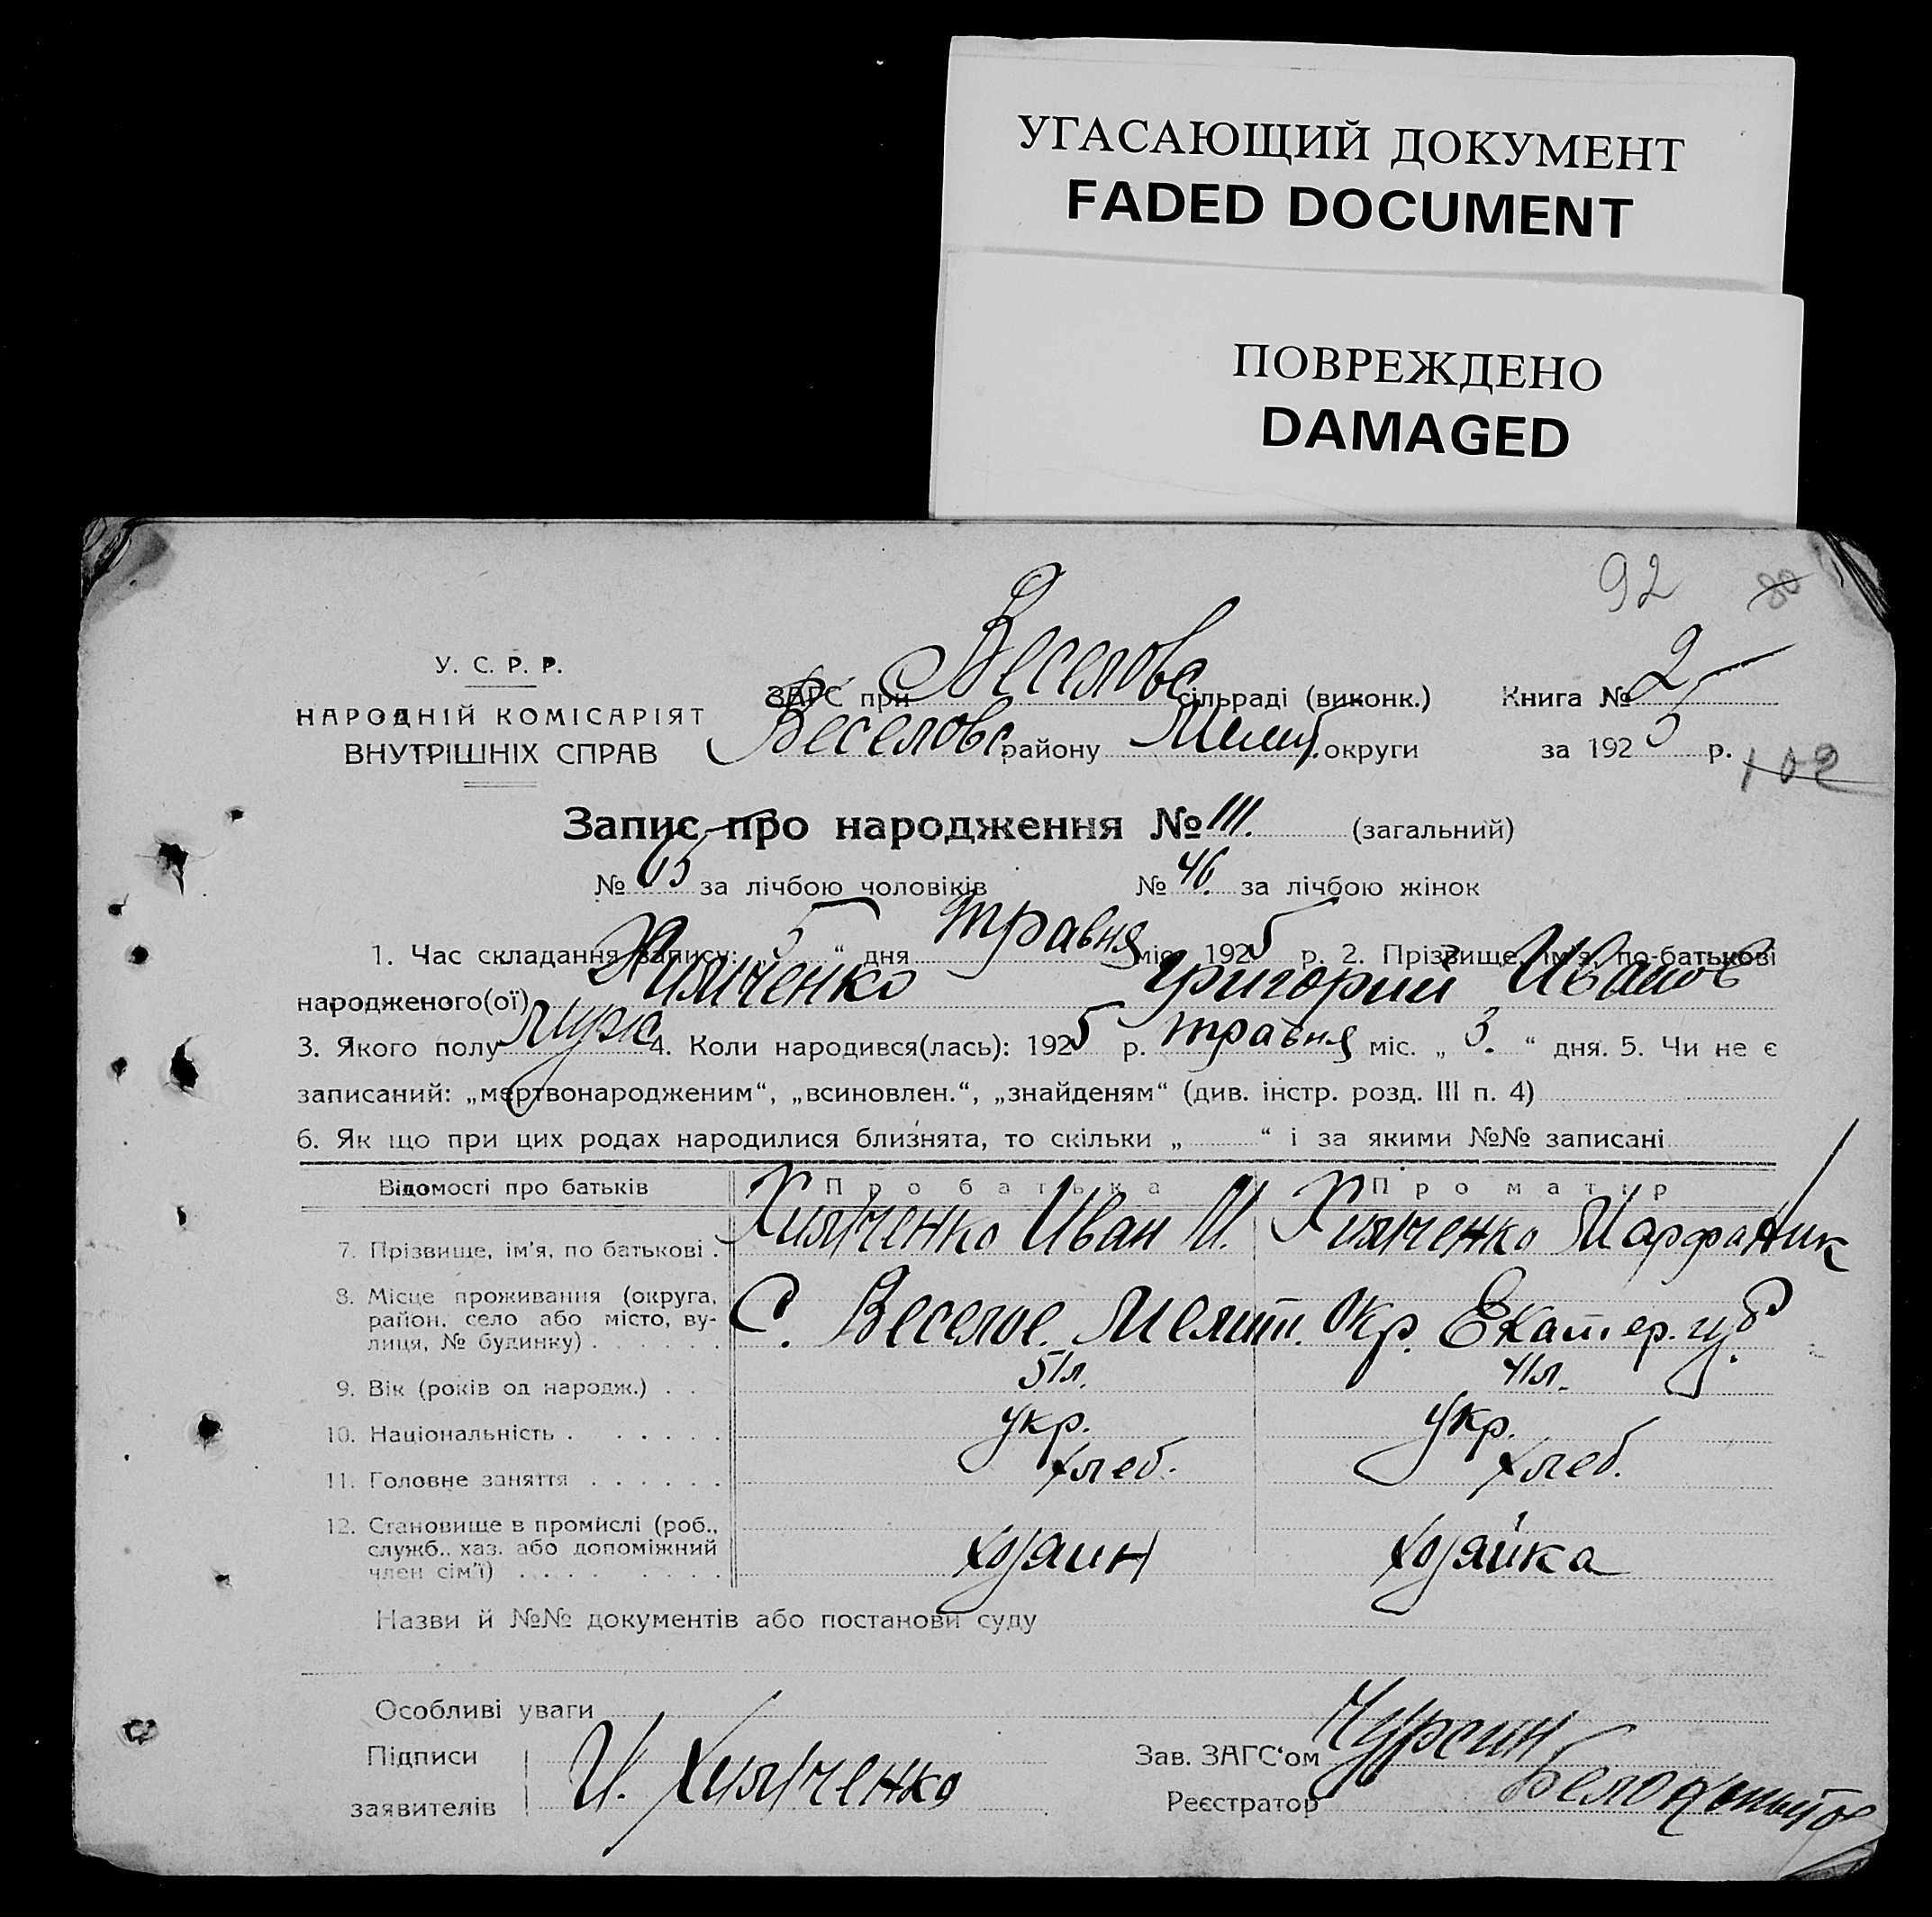 УГАСАЮЩИЙ ДОКУМЕНТ
FADED DOCUMENT
ПОВРЕЖДЕНО
DAMAGED
92 80
У. С. Р. Р.
НАРОДНІЙ КОМІСАРІЯТ
ВНУТРІШНІХ СПРАВ
ЗАГС при Веселовс сільраді (виконк.) Книга № 2
Веселовс району Мелит. округи за 1925 р.
102
Запис про народження № 111. (загальний)
№ 65 за лічбою чоловіків № 46. за лічбою жінок
1. Час складання запису: „5“ дня травня міс. 1925 р. 2. Прізвище, ім'я, по-батькові
народженого(ої) Химченко Григорий Иванов
3. Якого полу муж 4. Коли народився(лась): 1925 р. травня міс. „3.“ дня. 5. Чи не є
записаний: „мертвонародженим“, „всиновлен.“, „знайденям“ (див. інстр. розд. III п. 4)
6. Як що при цих родах народилися близнята, то скільки „ “ і за якими №№ записані
Відомості про батьків Про батька Про матір
7. Прізвище, ім'я, по батькові . Химченко Иван М. Химченко Марфа Ник
8. Місце проживання (округа, район, село або місто, вулиця, № будинку) С. Веселое. Мелит. Окр. Екатер. губ
9. Вік (років од народж.) . . 51л. 41л.
10. Національність . укр. укр.
11. Головне заняття хлеб. хлеб.
12. Становище в промислі (роб., служб., хаз. або допоміжний член сім'ї) хозяин хозяйка
Назви й №№ документів або постанови суду
Особливі уваги
Підписи заявителів И. Химченко
Зав. ЗАГС'ом Чурсин
Реєстратор